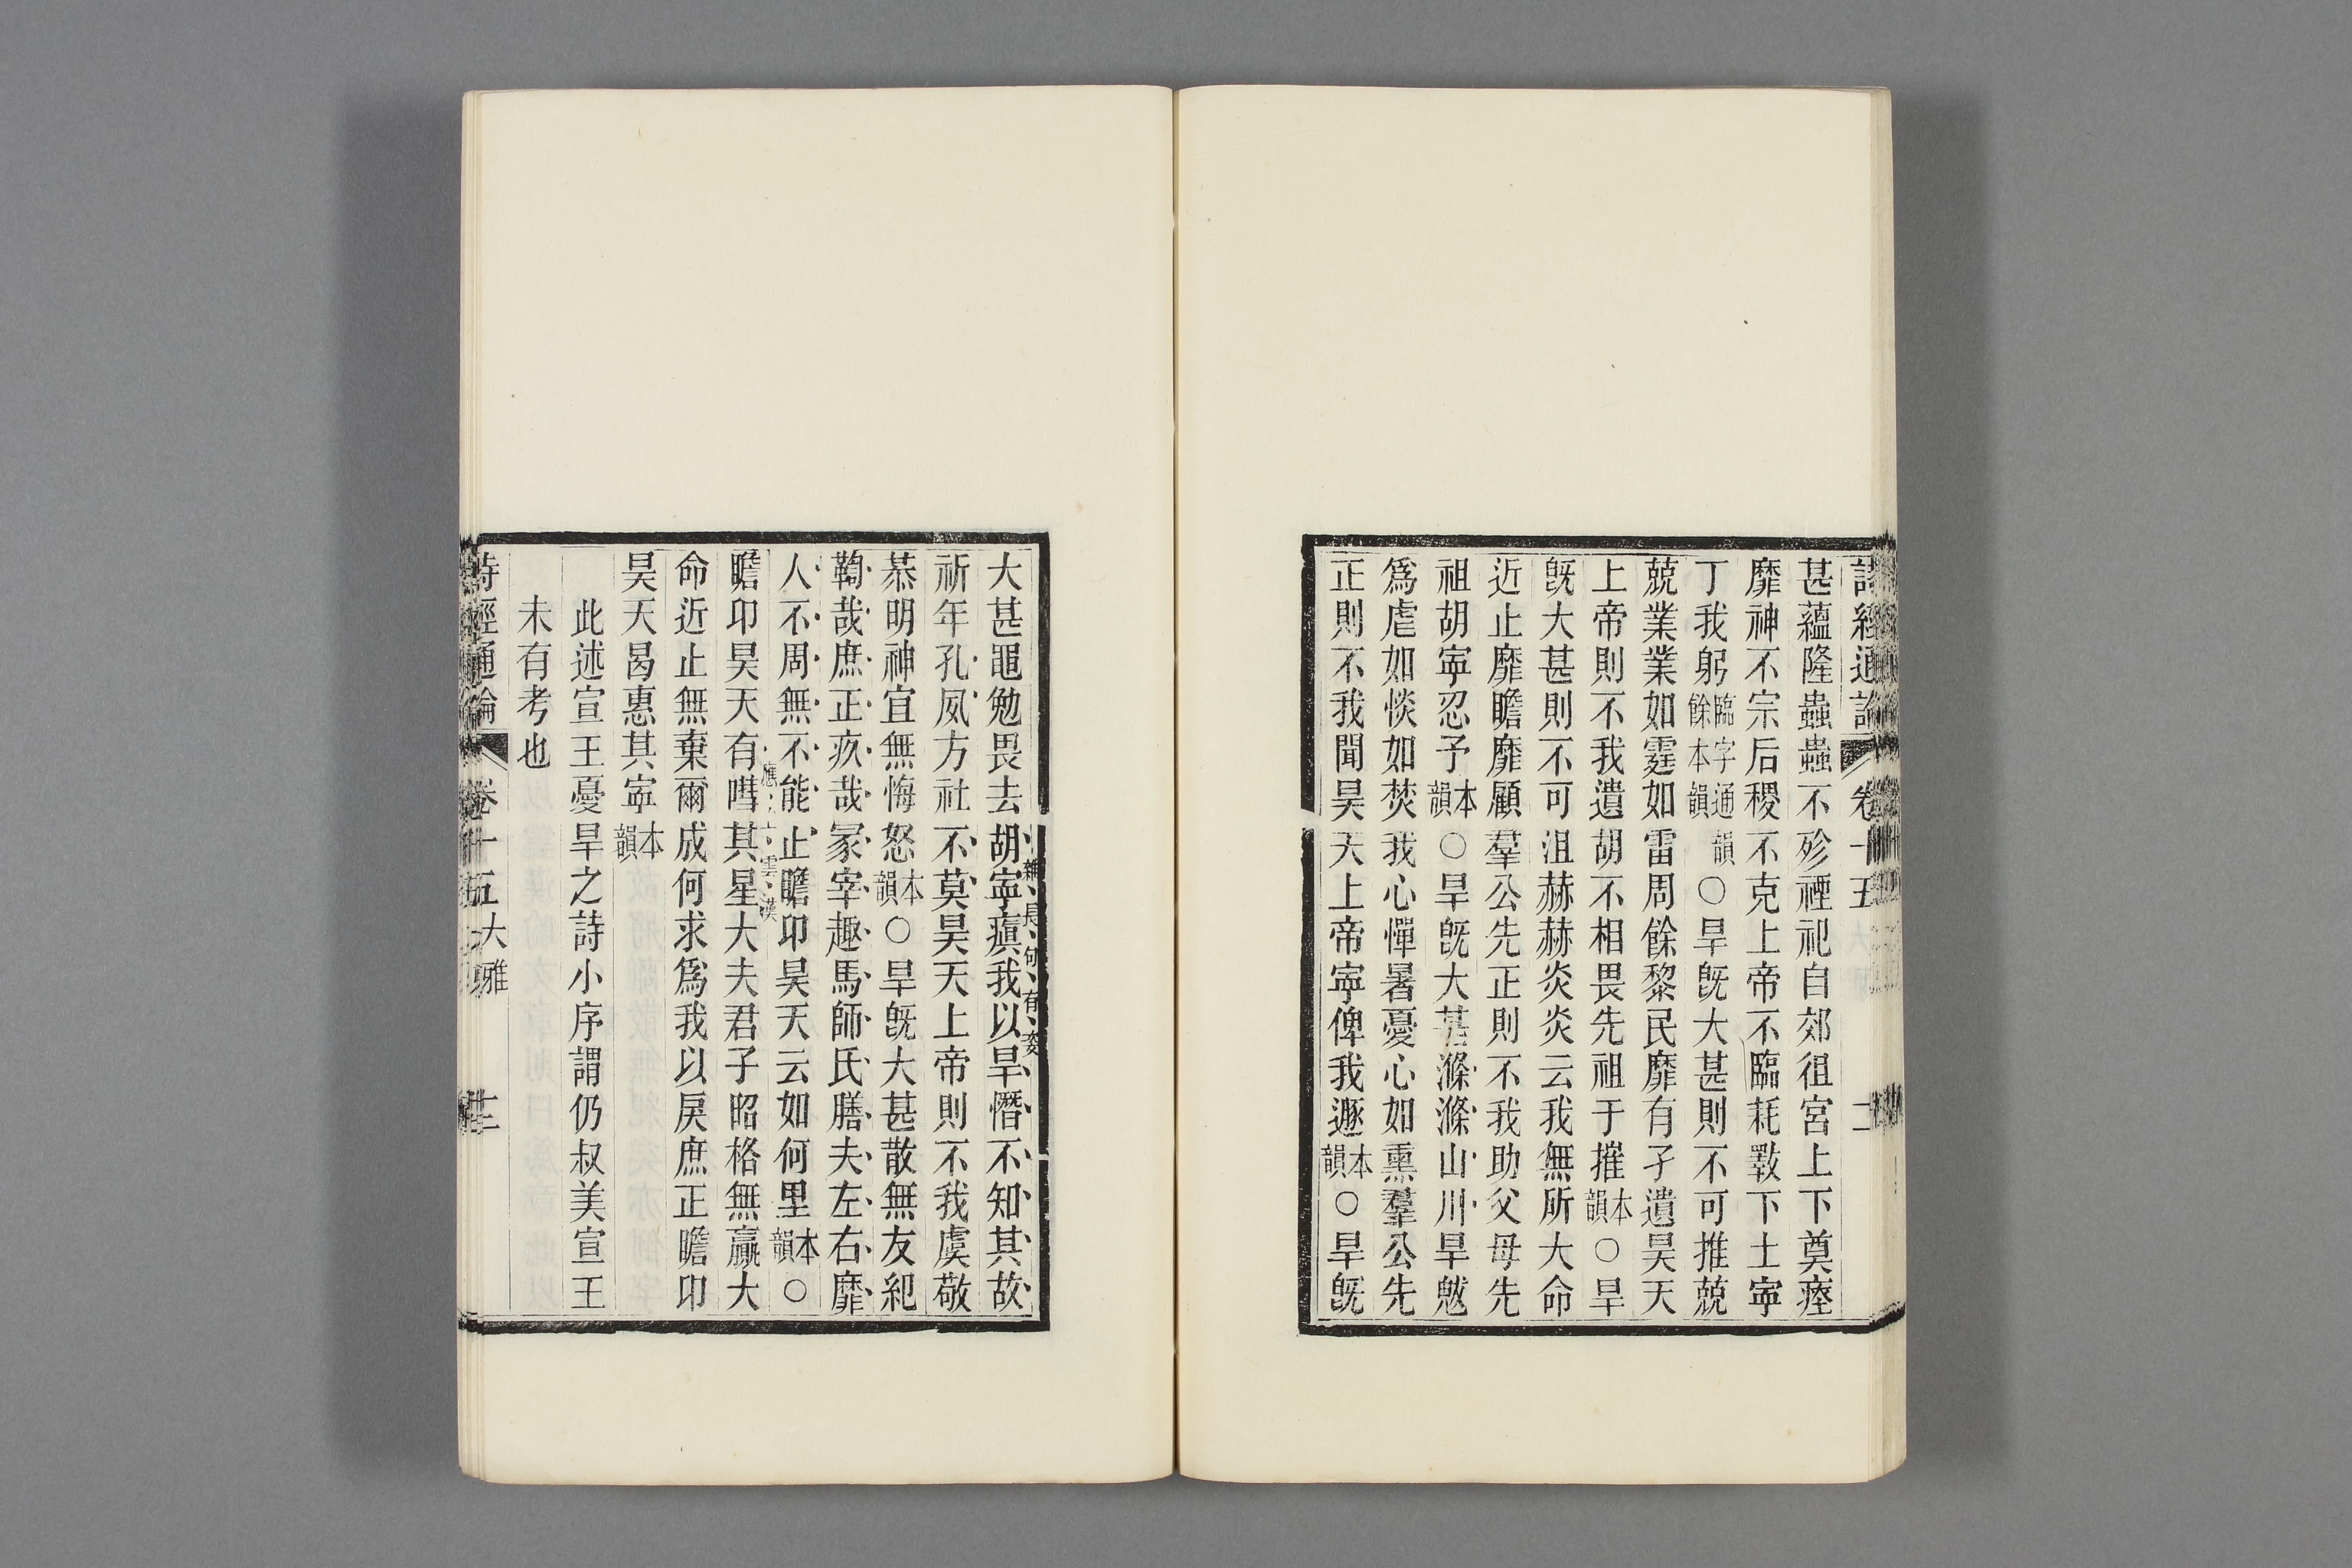 詩經通論 卷十五
甚蘊隆蟲蟲不殄禋祀自郊徂宮上下奠瘞
靡神不宗后稷不克上帝不臨耗斁下土寧
丁我躬臨字通韻餘本韻○旱旣大甚則不可推兢
兢業業如霆如雷周餘黎民靡有孑遺昊天
上帝則不我遺胡不相畏先祖于摧本韻○旱
旣大甚則不可沮赫赫炎炎云我無所大命
近止靡瞻靡顧羣公先正則不我助父母先
祖胡寧忍予本韻○旱旣大甚滌滌山川旱魃
爲虐如惔如焚我心憚暑憂心如熏羣公先
正則不我聞昊天上帝寧俾我遯本韻○旱旣
大甚黽勉畏去胡寧瘨我以旱憯不知其故
雜長句有姿
祈年孔夙方社不莫昊天上帝則不我虞敬
恭明神宜無悔怒本韻○旱旣大甚散無友紀
鞫哉庶正疚哉冢宰趣馬師氏膳夫左右靡
人不周無不能止瞻卬昊天云如何里本韻○
應上雲漢
瞻卬昊天有嘒其星大夫君子昭格無贏大
命近止無棄爾成何求爲我以戾庶正瞻卬
昊天曷惠其寧本韻
此述宣王憂旱之詩小序謂仍叔美宣王
未有考也
詩經通論 卷十五 大雅